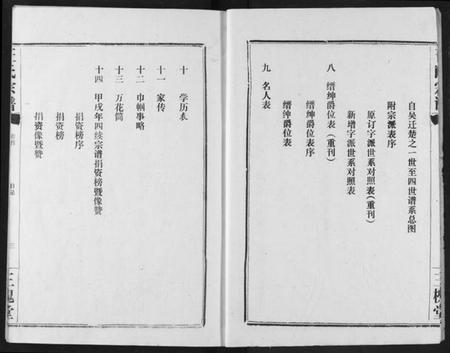 自吴迁楚之一世至四世谱系总图
附宗派表序
原订字派世系对照表(重刊)
新增字派世系对照表
八 缙绅爵位表(重刊)
缙绅爵位表序
缙绅爵位表
九 名人表
十 学历表
十一 家传
十二 巾帼事略
十三 万花筒
十四 甲戌年四续宗谱捐资榜暨像赞
捐资榜序
捐资榜
捐资像暨赞
氏宗谱
卷首
目录
三槐堂
三槐堂